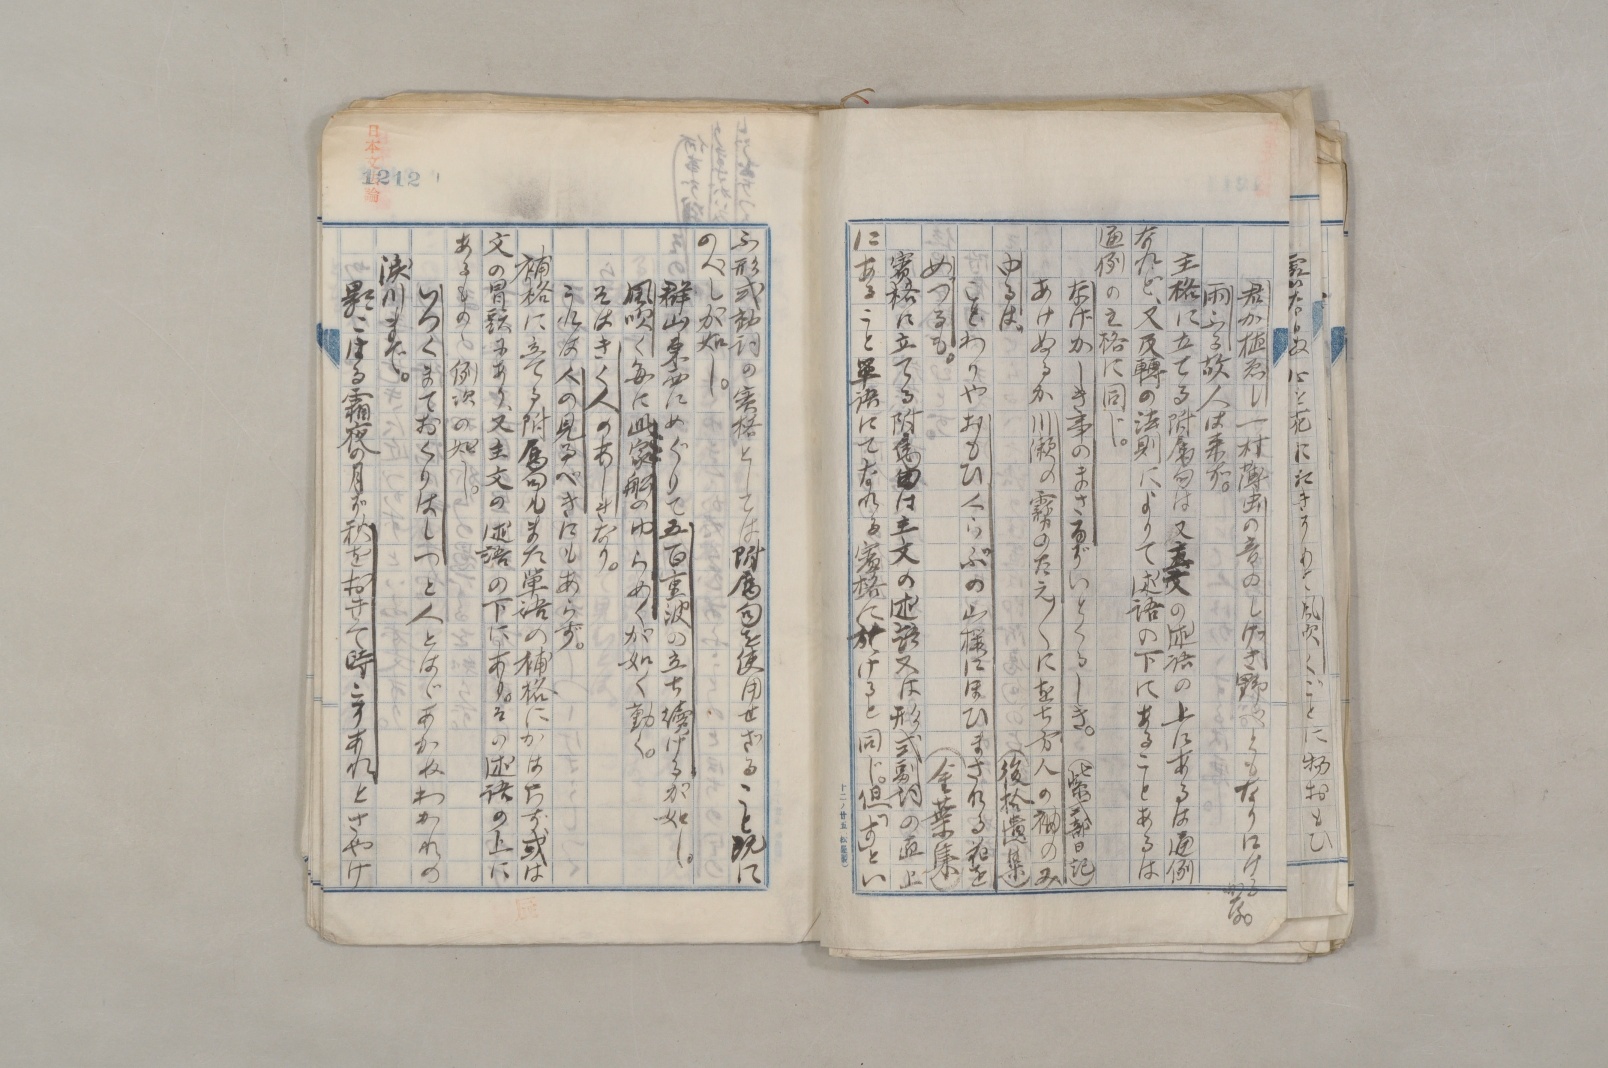 君が植ゑし一村薄虫の音のしげき野邊ともなりにける哉。
雨ふる故人は来ず。
主格に立てる附属句は又主文の述語の上にあるは通例
なれど、又反轉の法則によりて述語の下にあることあるは
通例の主格に同じ。
なげかしき事のまさるぞいとくるしき。(紫式部日記)
あけぬるか川瀬の霧のたえ〲にをち方人の袖のみ
ゆるは。(後拾遺集)
ことわりやおもひくらぶの山櫻にほひまされる花を
めづるも。(金葉集)
賓格に立てる附属句は主文の述語又は形式副詞の直上
にあること單語にてなれる賓格に於けると同じ。但、すとい
ふ形式動詞の賓格としては附属句を使用せざること既に
のべしが如し。
群山東西にめぐりて五百重波の立ち續けるが如し。
風吹く毎に此家船のゆらめくが如く動く。
そはきく人のあしきなり。
これは人の見るべきにもあらず。
補格に立てる附属句もまた単語の補格にかはらず或は
文の冒頭にあり、又主文の述語の下にあり。その述語の上に
あるものの例次の如し。
いづくまでおくりはしつと人とはゞあかぬわかれの
涙川まで。
影こほる霜夜の月ぞ秋をおきて時こすあれとさやけ
日本文法論
1212
十二ノ廿五 松屋製